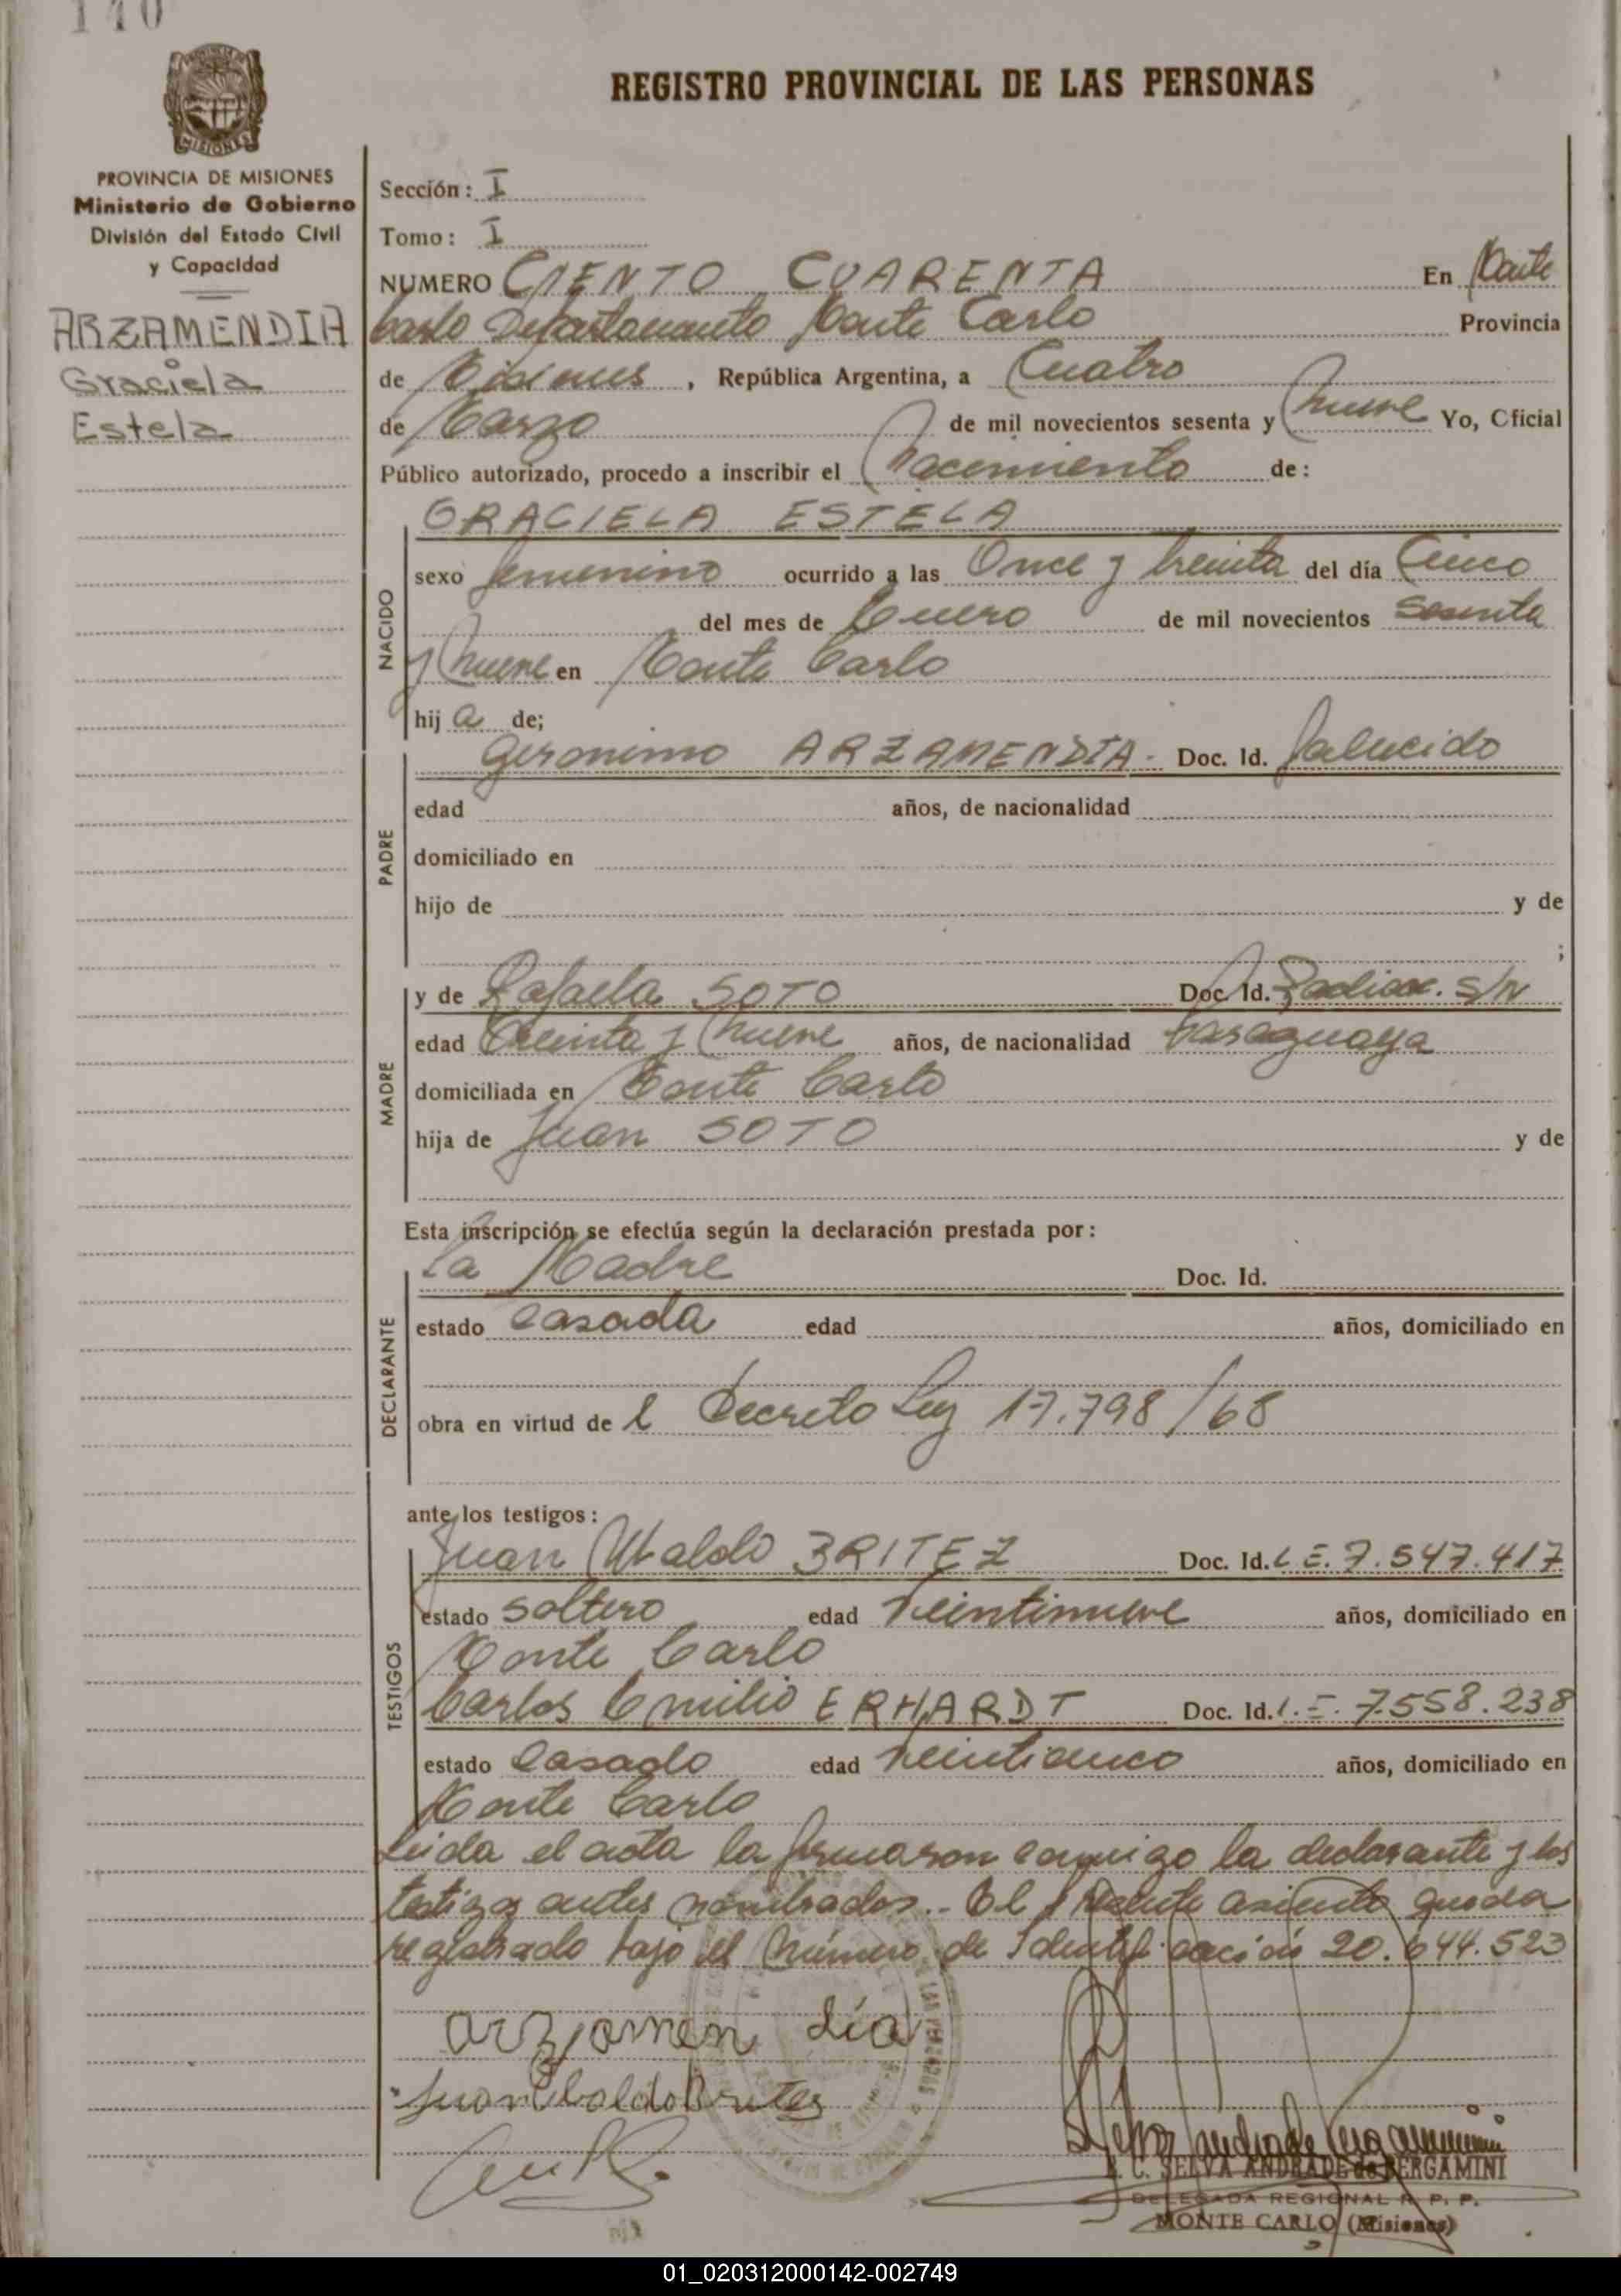 140
REGISTRO PROVINCIAL DE LAS PERSONAS
MISIONES
PROVINCIA DE MISIONES
Ministerio de Gobierno
División del Estado Civil
y Capacidad
ARZAMENDIA
Graciela
Estela
Sección: I
Tomo: I
NUMERO CIENTO CUARENTA En Monte
Carlo Departamento Monte Carlo Provincia
de Misiones, República Argentina, a Cuatro
de Marzo de mil novecientos sesenta y Nueve Yo, Oficial
Público autorizado, procedo a inscribir el Nacimiento de:
NACIDO
GRACIELA ESTELA
sexo femenino ocurrido a las Once y treinta del día Cinco
del mes de Enero de mil novecientos Sesenta
y Nueve en Monte Carlo
hij a de;
PADRE
Geronimo ARZAMENDIA- Doc. Id. falucido
edad años, de nacionalidad
domiciliado en
hijo de y de
;
MADRE
y de Rafaela SOTO Doc. Id. Radicac. S/N
edad Treinta y Nueve años, de nacionalidad Paraguaya
domiciliada en Monte Carlo
hija de Juan SOTO y de
Esta inscripción se efectúa según la declaración prestada por:
DECLARANTE
La Madre Doc. Id.
estado Casada edad años, domiciliado en
obra en virtud de l Decreto Ley 17.798/68
ante los testigos:
TESTIGOS
Juan Ubaldo BRITEZ Doc. Id. L.E. 7.547.417
estado Soltero edad Veintinueve años, domiciliado en
Monte Carlo
Carlos Emilio ERHARDT Doc. Id. L.E. 7.558.238
estado Casado edad Veinticinco años, domiciliado en
Monte Carlo
Leida el acta la firmaron conmigo la declarante y los
testigos antes nombrados.- El presente asiento queda
registrado bajo el Número de Identificación 20.644.523
arzamen día
Juan Ubaldo Britez
Selva Andrade Bergamini
E. C. SELVA ANDRADE de BERGAMINI
DELEGADA REGIONAL R. P. P.
MONTE CARLO (Misiones)
01_020312000142-002749